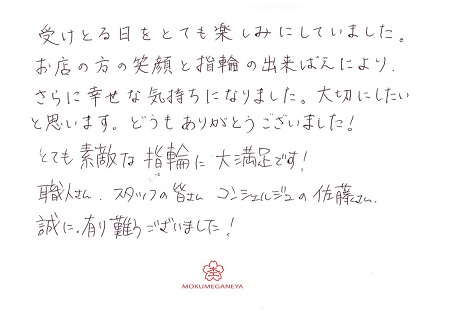 受けとる日をとても楽しみにしていました。
お店の方の笑顔と指輪の出来ばえにより、
さらに幸せな気持ちになりました。大切にしたい
と思います。どうもありがとうございました!
とても素敵な指輪に大満足です!
職人さん、スタッフの皆さん コンシェルジュの佐藤さん、
誠に、有り難うございました!
MOKUMEGANEYA